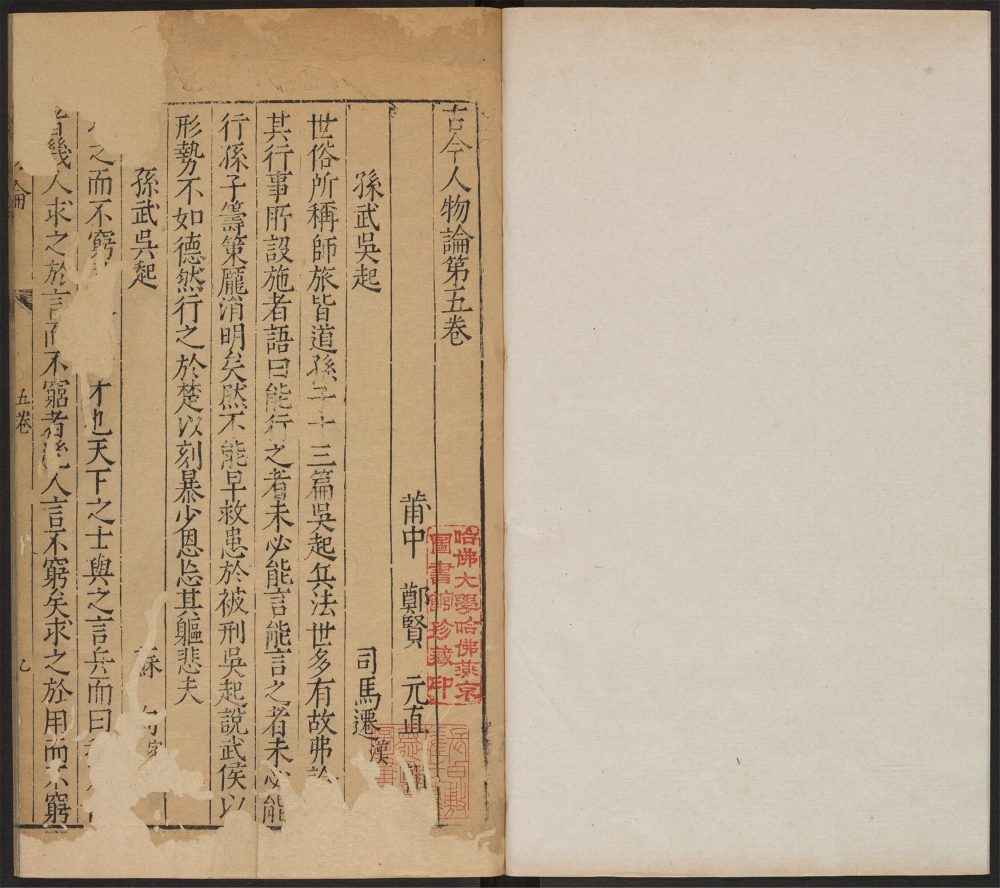 古今人物論第五卷
莆中 鄭賢 元直
孫武吳起 司馬遷 漢
世俗所稱師旅皆道孫子十三篇吳起兵法世多有故弗論
其行事所設施者語曰能行之者未必能言能言之者未必能
行孫子籌策龐涓明矣然不能早救患於被刑吳起說武侯以
形勢不如德然行之於楚以刻暴少恩忘其軀悲夫
孫武吳起 蘇
之而不窮 才也天下之士與之言兵而曰
幾人求之於言而不窮者幾人言不窮矣求之於用而不窮
論 五卷
哈佛大學哈佛燕京
圖書館珍藏印